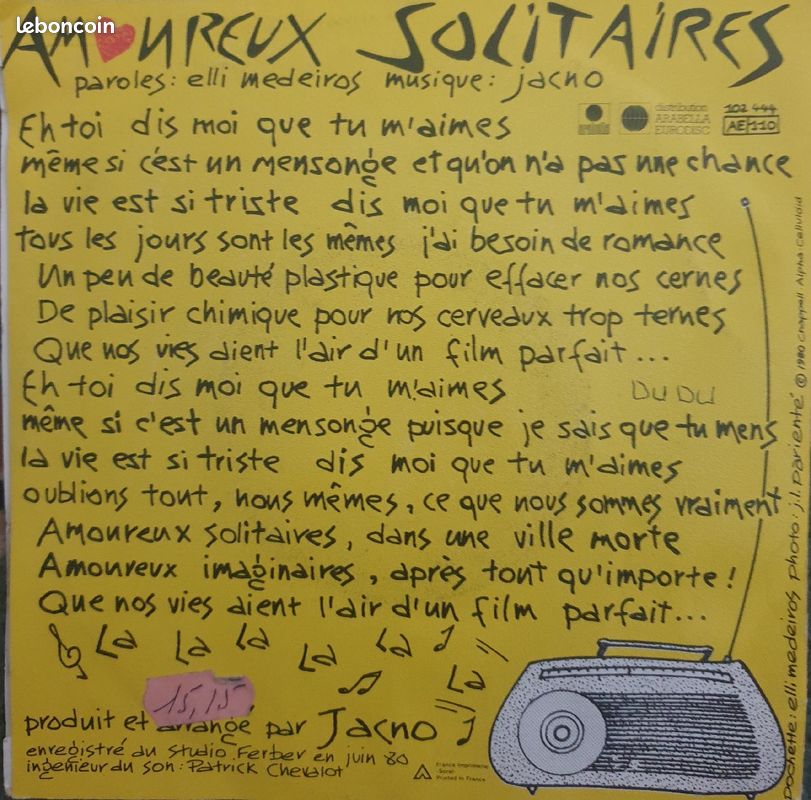 leboncoin
AM♥UREUX SOLITAIRES
paroles: elli medeiros musique: jacno
distribution
ARABELLA
EURODISC
102 444
AE 110
Eh toi dis moi que tu m'aimes
même si c'est un mensonge et qu'on n'a pas une chance
la vie est si triste dis moi que tu m'aimes
tous les jours sont les mêmes j'ai besoin de romance
Un peu de beauté plastique pour effacer nos cernes
De plaisir chimique pour nos cerveaux trop ternes
Que nos vies aient l'air d'un film parfait...
Eh toi dis moi que tu m'aimes
DU DU
même si c'est un mensonge puisque je sais que tu mens
la vie est si triste dis moi que tu m'aimes
oublions tout, nous mêmes, ce que nous sommes vraiment
Amoureux solitaires, dans une ville morte
Amoureux imaginaires, après tout qu'importe!
Que nos vies aient l'air d'un film parfait...
La La La La La La
15,15
produit et arrangé par Jacno
enregistré au Studio Ferber en juin 80
ingénieur du son: Patrick Chevalot
France Imprimerie
Printed in France
Pochette: elli medeiros photo: j.l. Pariente © 1980 Chappell Alpha-Celluloid